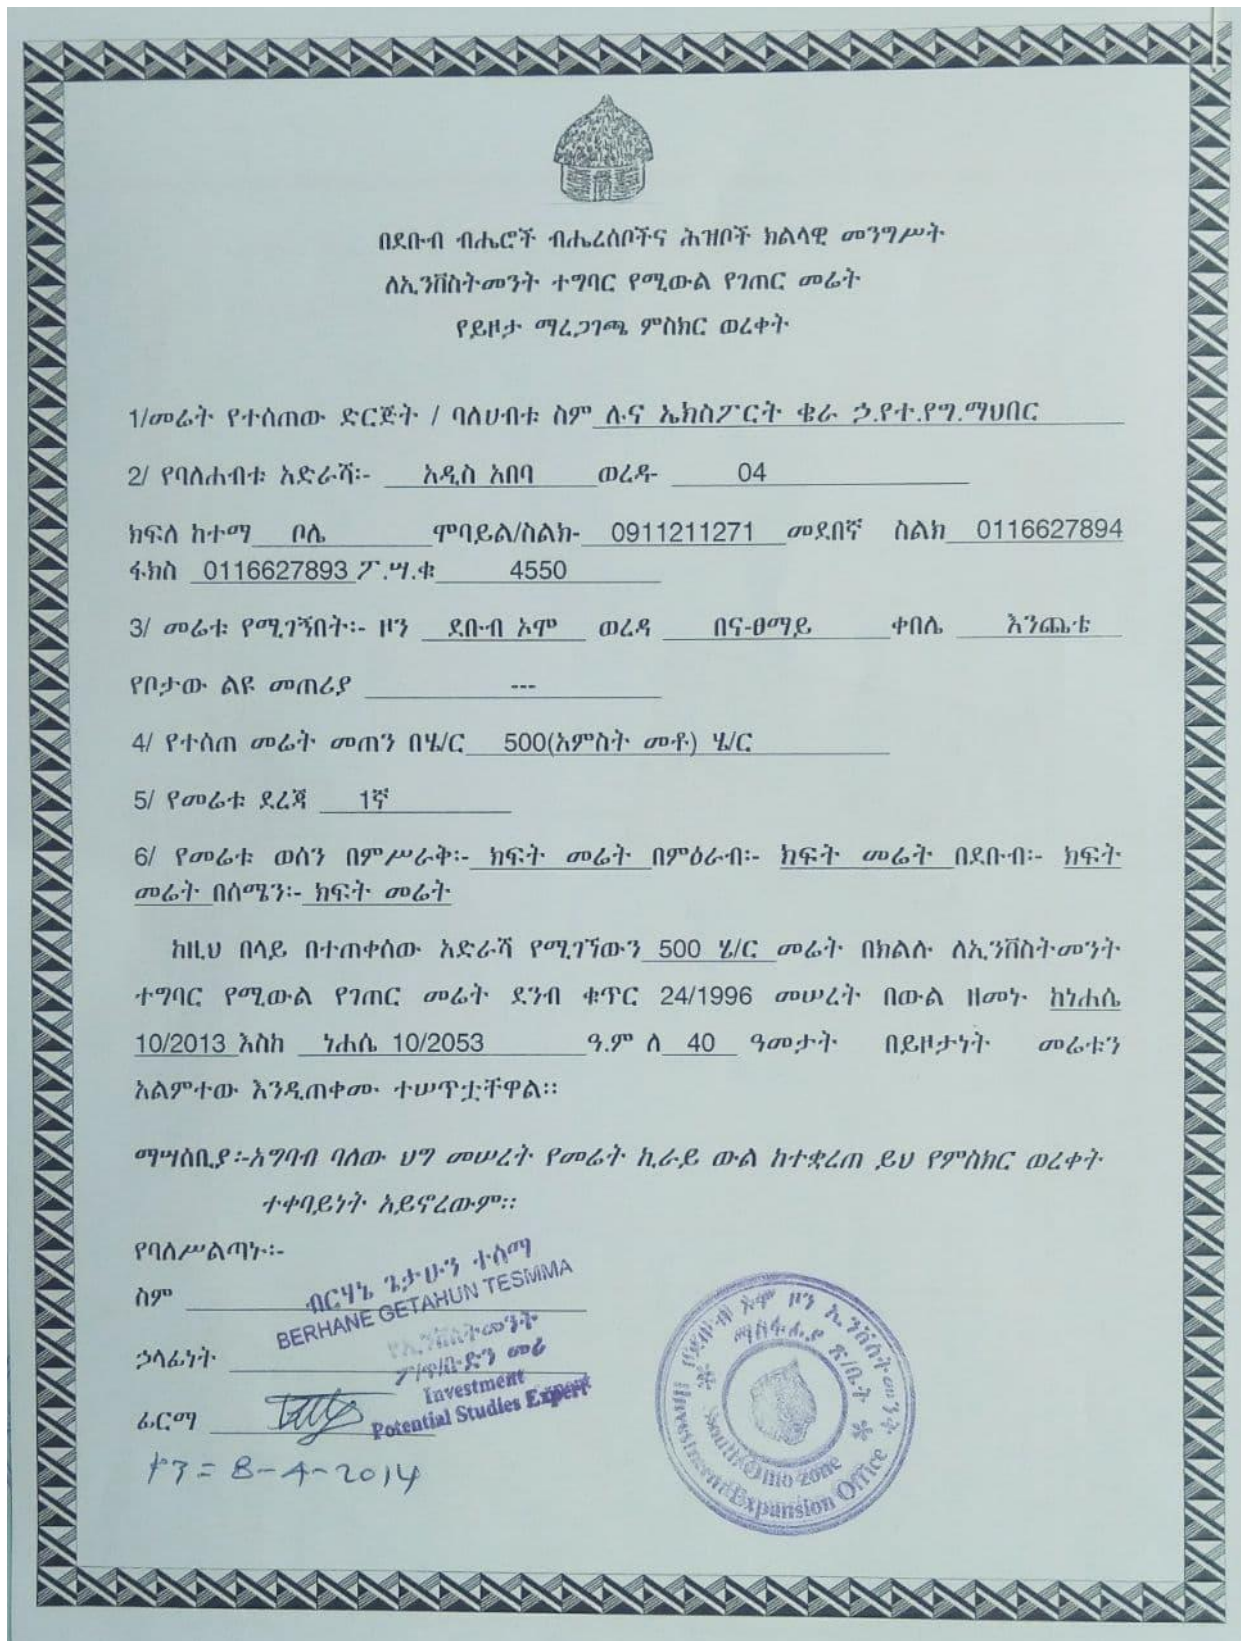 በደቡብ ብሔሮች ብሔረሰቦችና ሕዝቦች ክልላዊ መንግሥት
ለኢንቨስትመንት ተግባር የሚውል የገጠር መሬት
የይዞታ ማረጋገጫ ምስክር ወረቀት
1/መሬት የተሰጠው ድርጅት / ባለሀብቱ ስም ሉና ኤክስፖርት ቄራ ኃ.የተ.የግ.ማህበር
2/ የባለሐብቱ አድራሻ፡- አዲስ አበባ ወረዳ- 04
ክፍለ ከተማ ቦሌ ሞባይል/ስልክ- 0911211271 መደበኛ ስልክ 0116627894
ፋክስ 0116627893 ፖ.ሣ.ቁ 4550
3/ መሬቱ የሚገኝበት፡- ዞን ደቡብ ኦሞ ወረዳ በና-ፀማይ ቀበሌ እንጨቴ
የቦታው ልዩ መጠሪያ ---
4/ የተሰጠ መሬት መጠን በሄ/ር 500(አምስት መቶ) ሄ/ር
5/ የመሬቱ ደረጃ 1ኛ
6/ የመሬቱ ወሰን በምሥራቅ፡- ክፍት መሬት በምዕራብ፡- ክፍት መሬት በደቡብ፡- ክፍት
መሬት በሰሜን፡- ክፍት መሬት
ከዚህ በላይ በተጠቀሰው አድራሻ የሚገኘውን 500 ሄ/ር መሬት በክልሉ ለኢንቨስትመንት
ተግባር የሚውል የገጠር መሬት ደንብ ቁጥር 24/1996 መሠረት በውል ዘመኑ ከነሐሴ
10/2013 እስከ ነሐሴ 10/2053 ዓ.ም ለ 40 ዓመታት በይዞታነት መሬቱን
አልምተው እንዲጠቀሙ ተሠጥቷቸዋል፡፡
ማሣሰቢያ፡-አግባብ ባለው ህግ መሠረት የመሬት ኪራይ ውል ከተቋረጠ ይህ የምስክር ወረቀት
ተቀባይነት አይኖረውም፡፡
የባለሥልጣኑ፡-
ስም ብርሃኔ ጌታሁን ተሰማ
BERHANE GETAHUN TESMMA
ኃላፊነት
Investment
Potential Studies Expert
ፊርማ
ቀን = 8-4-2014
ደቡብ ኦሞ ዞን ኢንቨስትመንት
ማስፋፊያ ጽ/ቤት
South Omo zone
Investment Expansion Office